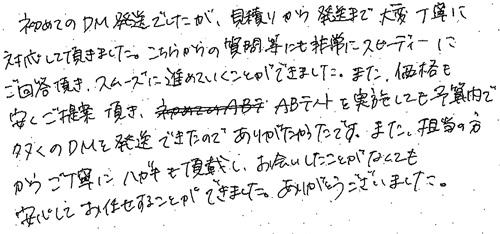 初めてのDM発送でしたが、見積りから発送まで大変丁寧に
対応して頂きました。こちらからの質問等にも非常にスピーディーに
ご回答頂き、スムーズに進めていくことができました。また、価格も
安くご提案頂き、初めてのABテ ABテストを実施しても予算内で
多くのDMを発送できたのでありがたかったです。また、担当の方
からご丁寧にハガキも頂戴し、お会いしたことがなくても
安心してお任せすることができました。ありがとうございました。